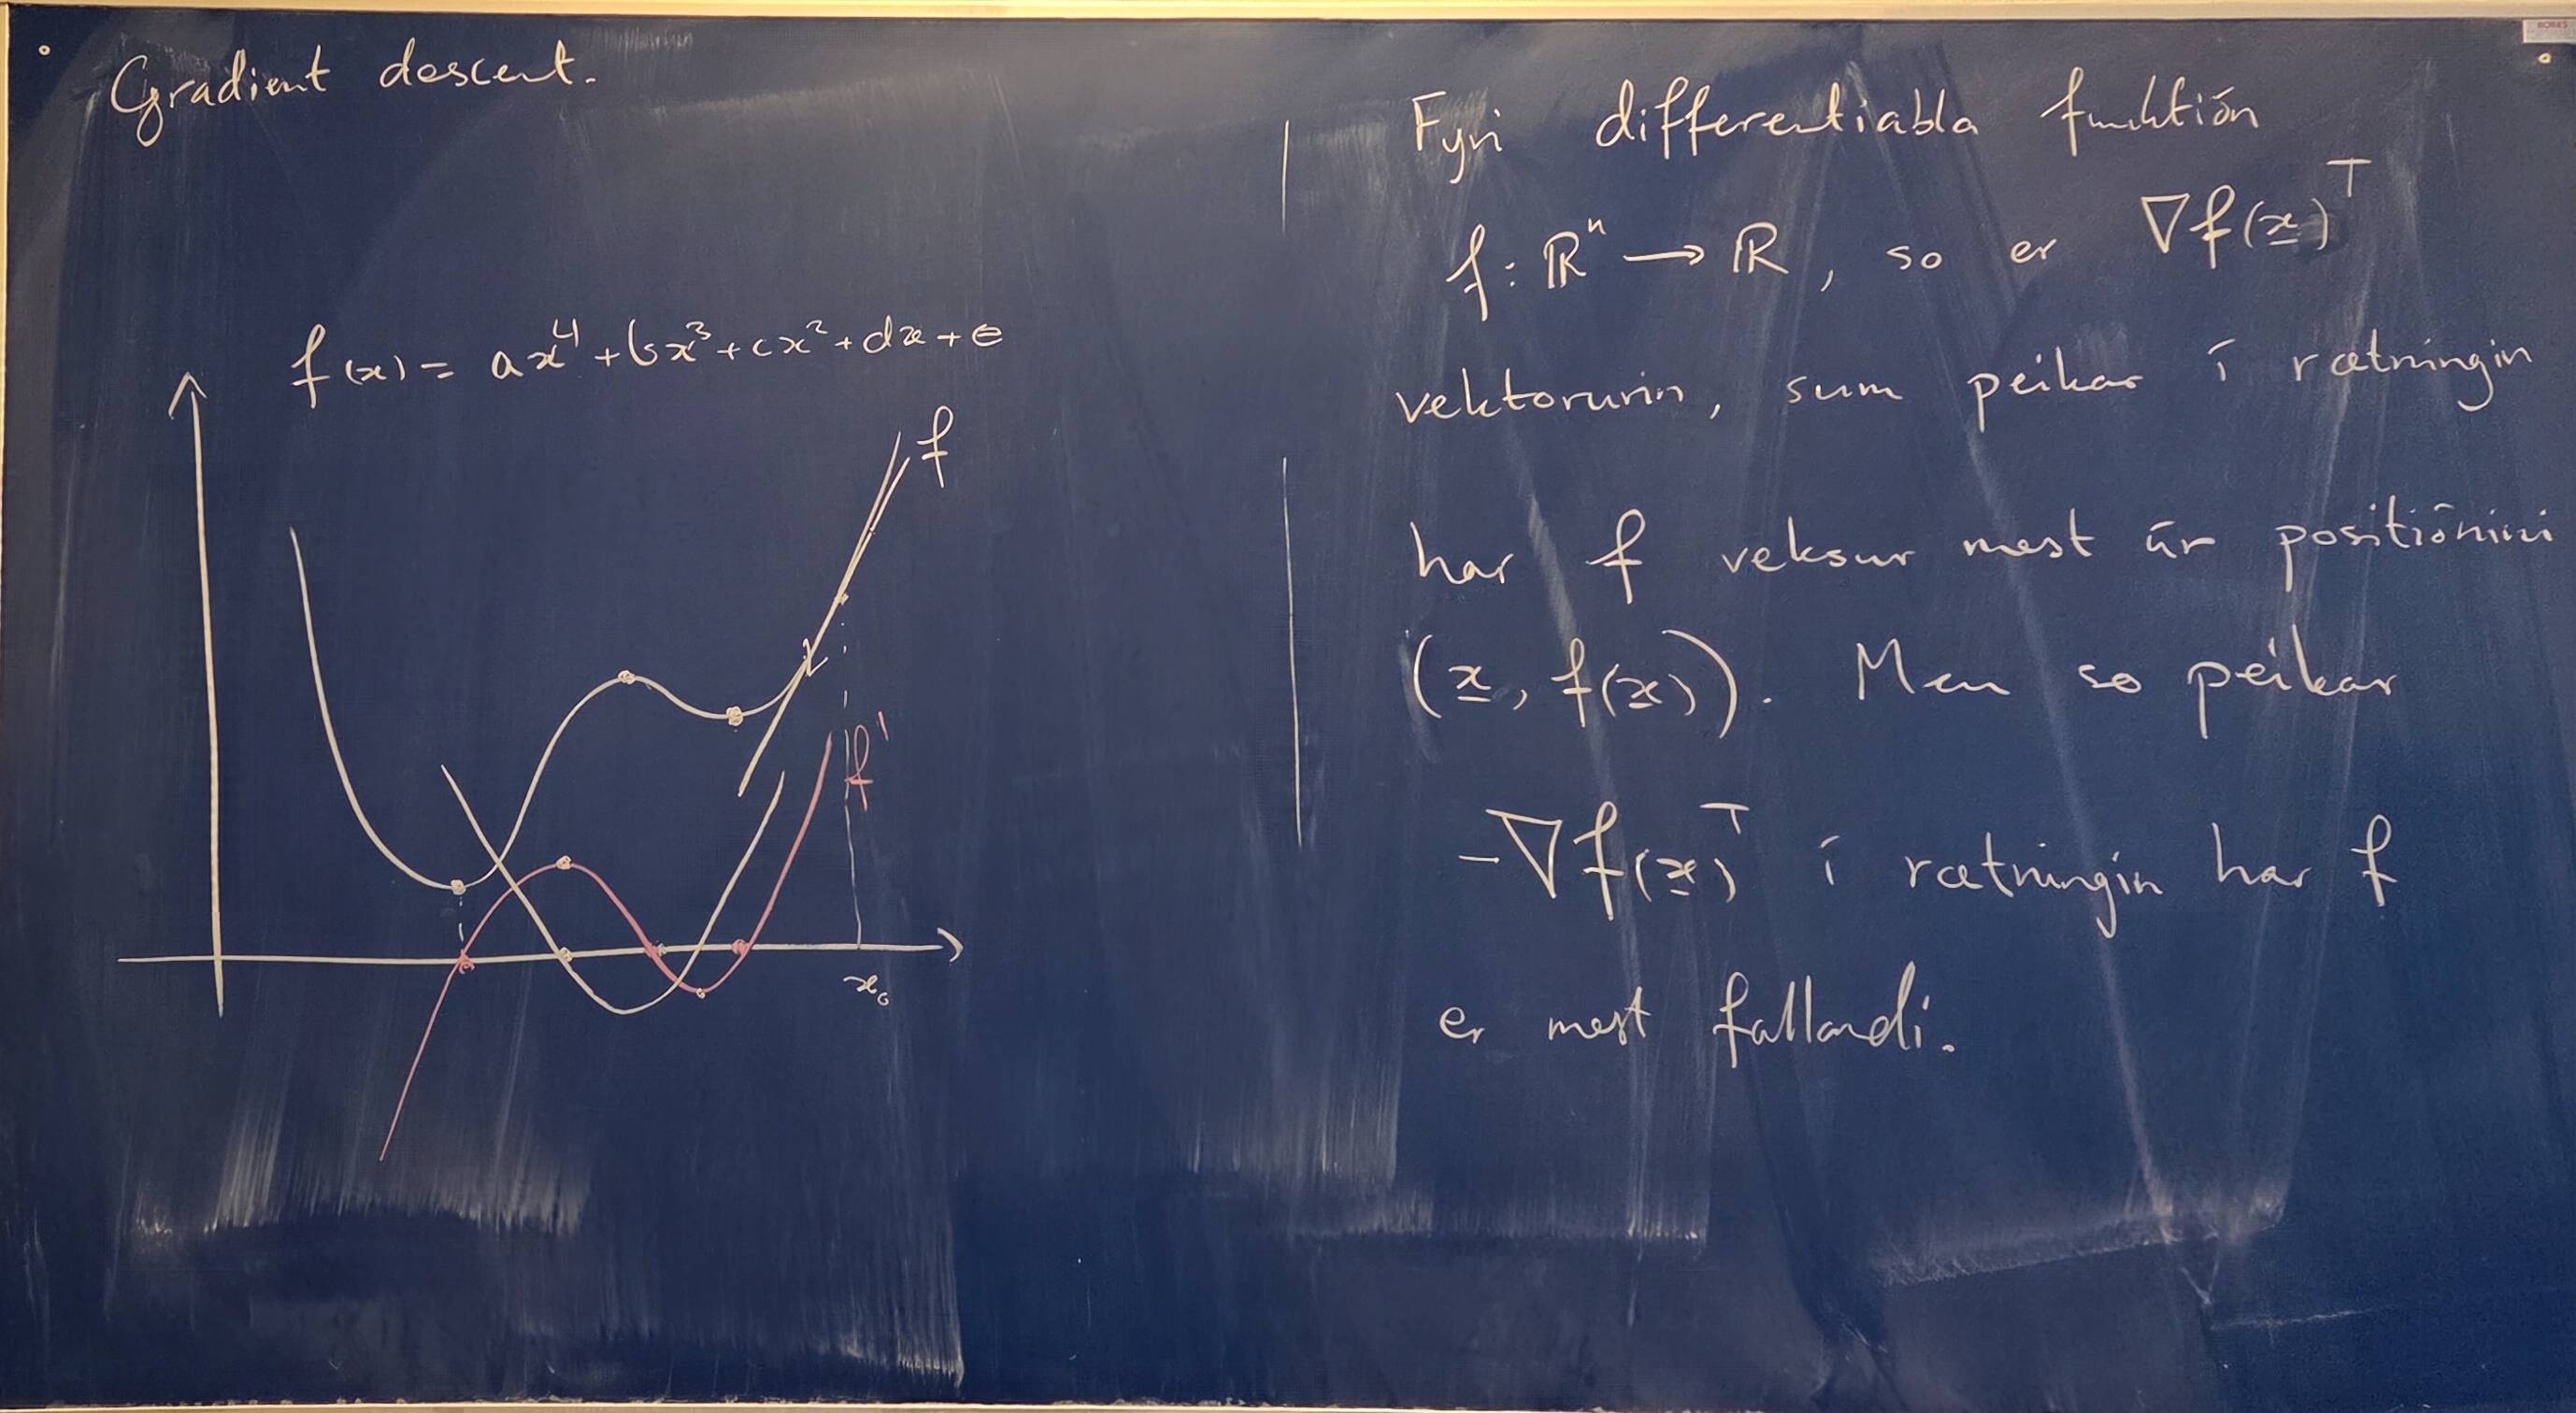 Gradient descent.
f(x) = ax⁴ + bx³ + cx² + dx + e
f
f'
x₀
Fyri differentiabla funktión
f: ℝⁿ → ℝ, so er ∇f(x̲)ᵀ
vektorurin, sum peikar í rætningin
har f veksur mest úr positiónini
(x̲, f(x̲)). Men so peikar
-∇f(x̲)ᵀ í rætningin har f
er mest fallandi.